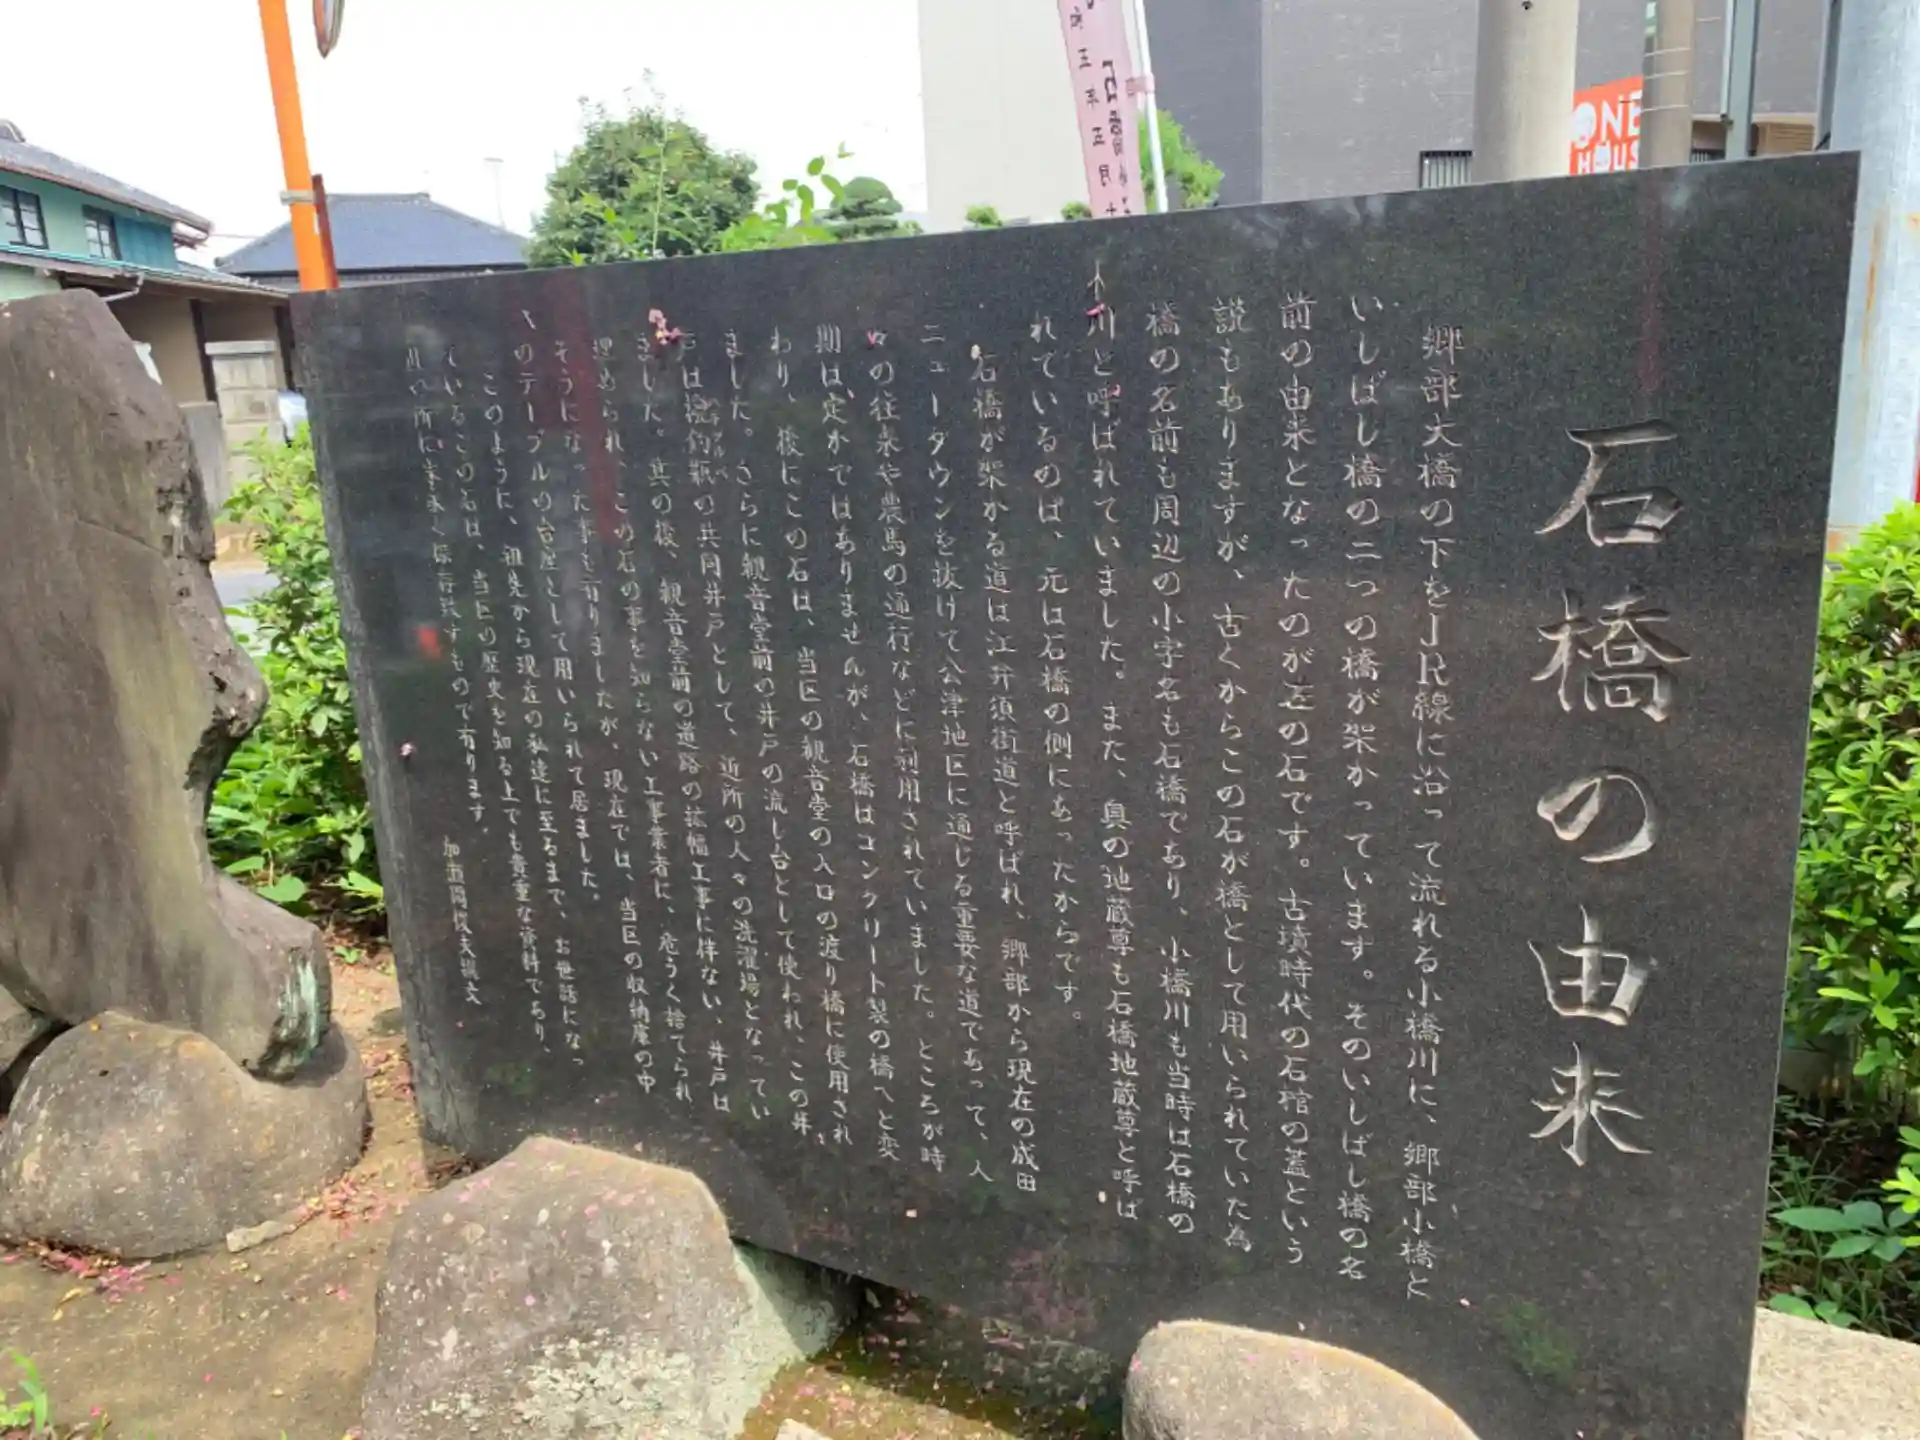 石橋の由来
郷部大橋の下をJR線に沿って流れる小橋川に、郷部小橋と
いしばし橋の二つの橋が架かっています。そのいしばし橋の名
前の由来となったのが左の石です。古墳時代の石棺の蓋という
説もありますが、古くからこの石が橋として用いられていた為
橋の名前も周辺の小字名も石橋であり、小橋川も当時は石橋の
川と呼ばれていました。また、奥の地蔵尊も石橋地蔵尊と呼ば
れているのは、元は石橋の側にあったからです。
石橋が架かる道は江弁須街道と呼ばれ、郷部から現在の成田
ニュータウンを抜けて公津地区に通じる重要な道であって、人
々の往来や農馬の通行などに利用されていました。ところが時
期は定かではありませんが、石橋はコンクリート製の橋へと変
わり、後にこの石は、当区の観音堂の入口の渡り橋に使用され
ました。さらに観音堂前の井戸の流し台として使われ、この井
戸は撥釣瓶の共同井戸として、近所の人々の洗濯場となってい
ました。其の後、観音堂前の道路の拡幅工事に伴ない、井戸は
埋められ、この石の事を知らない工事業者に、危うく捨てられ
そうになった事も有りましたが、現在では、当区の収納庫の中
のテーブルの台座として用いられて居ました。
このように、祖先から現在の私達に至るまで、お世話になっ
ているこの石は、当区の歴史を知る上でも貴重な資料であり、
に末永く保存致すもので有ります。
五年五月
ONE
HOUS